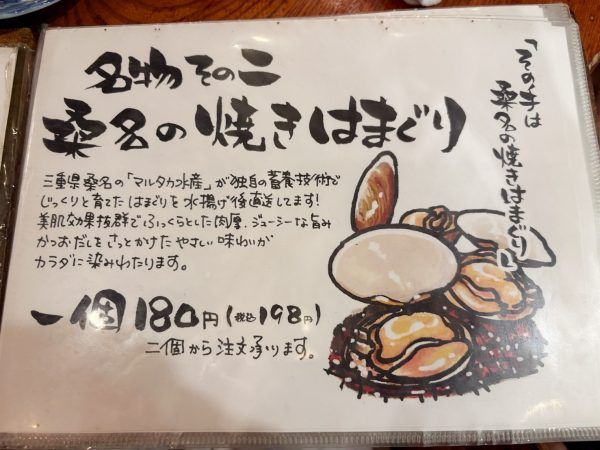 名物その二
桑名の焼きはまぐり
「その手は
桑名の焼きはまぐり」
三重県桑名の「マルタカ水産」が独自の蓄養技術で
じっくりと育てたはまぐりを水揚げ後直送してます!
美肌効果抜群でふっくらとした肉厚、ジューシーな旨み
かつおだしをさっとかけたやさしい味わいが
カラダに染みわたります。
一個180円(税込198円)
二個から注文承ります。